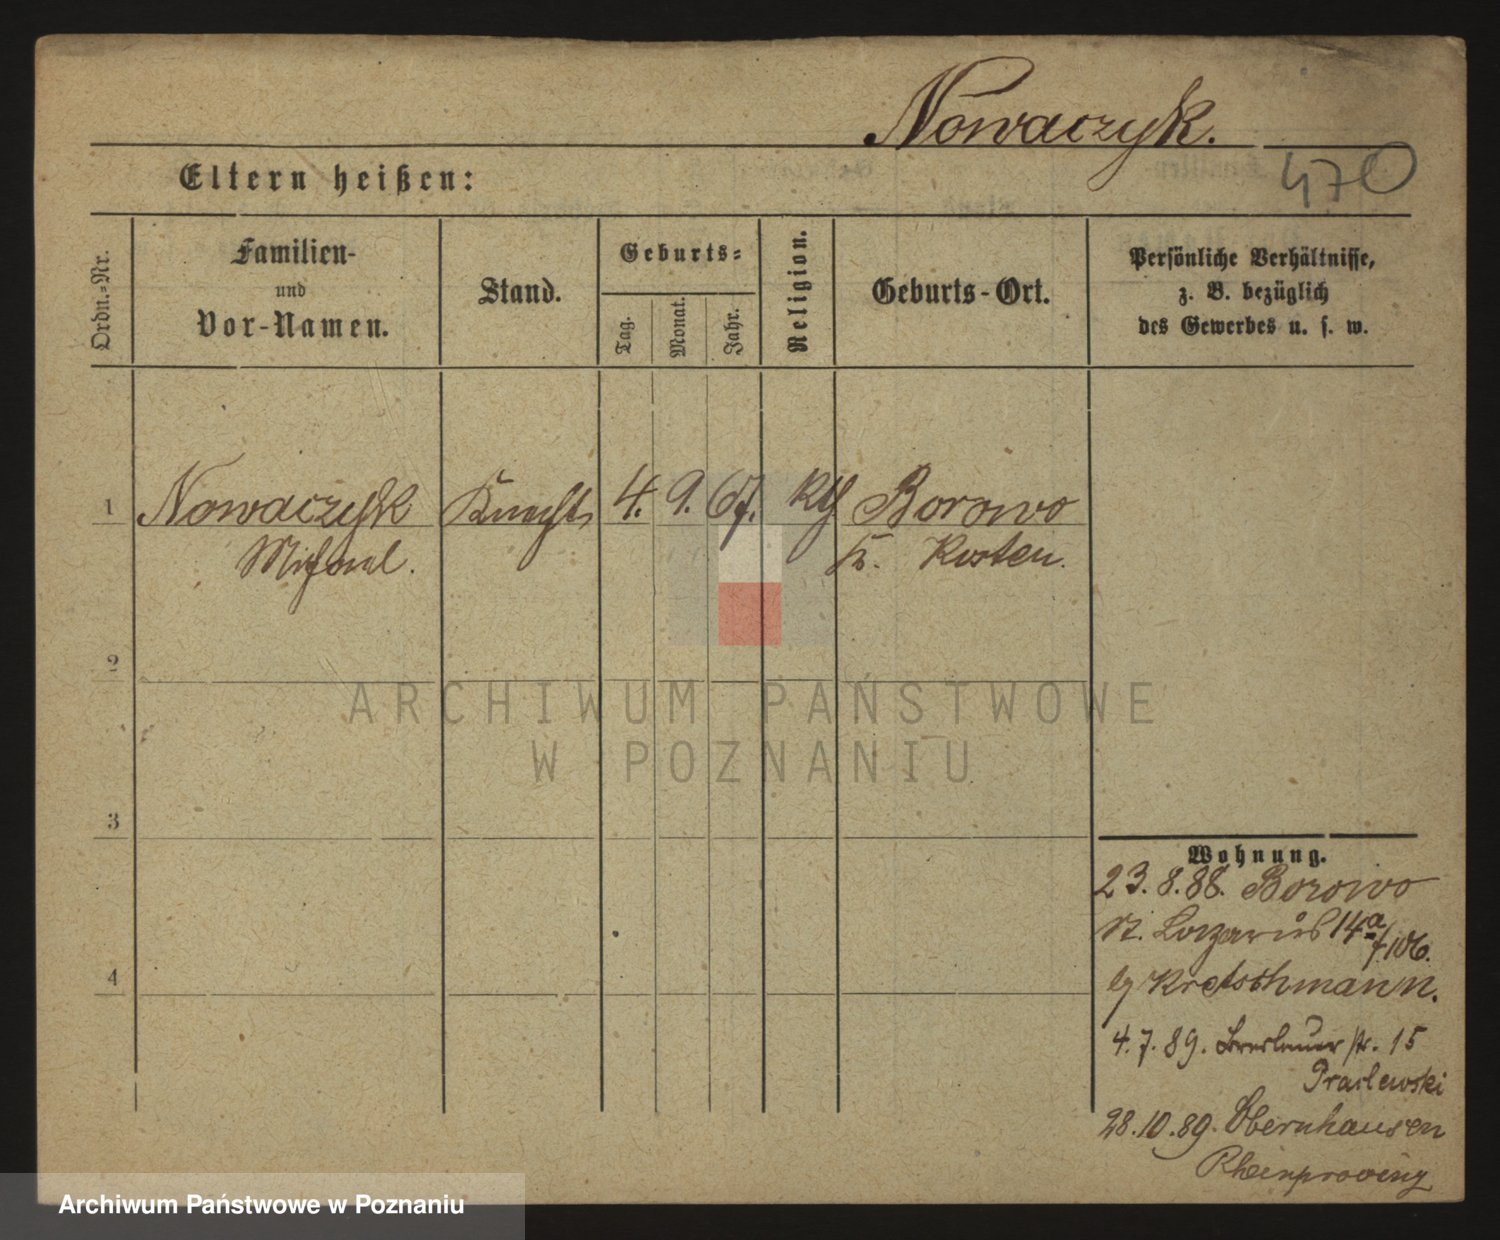 Nowaczyk.
470
Eltern heißen:
Ordn.=Nr.
Familien-
und
Vor-Namen.
Stand.
Geburts=
Tag.
Monat.
Jahr.
Religion.
Geburts-Ort.
Persönliche Verhältnisse,
z. B. bezüglich
des Gewerbes u. s. w.
1 Nowaczyk Knecht 4. 9. 67. Kth Borowo
Michael. Kr. Kosten.
2
ARCHIWUM PAŃSTWOWE
W POZNANIU
3
Wohnung.
23.8.88. Borowo
St. Lazarus 14a
/106.
Kretschmann.
4
4.7.89. Breslauer str. 15
28.10.89. Obernhausen
Rheinprovinz
Archiwum Państwowe w Poznaniu